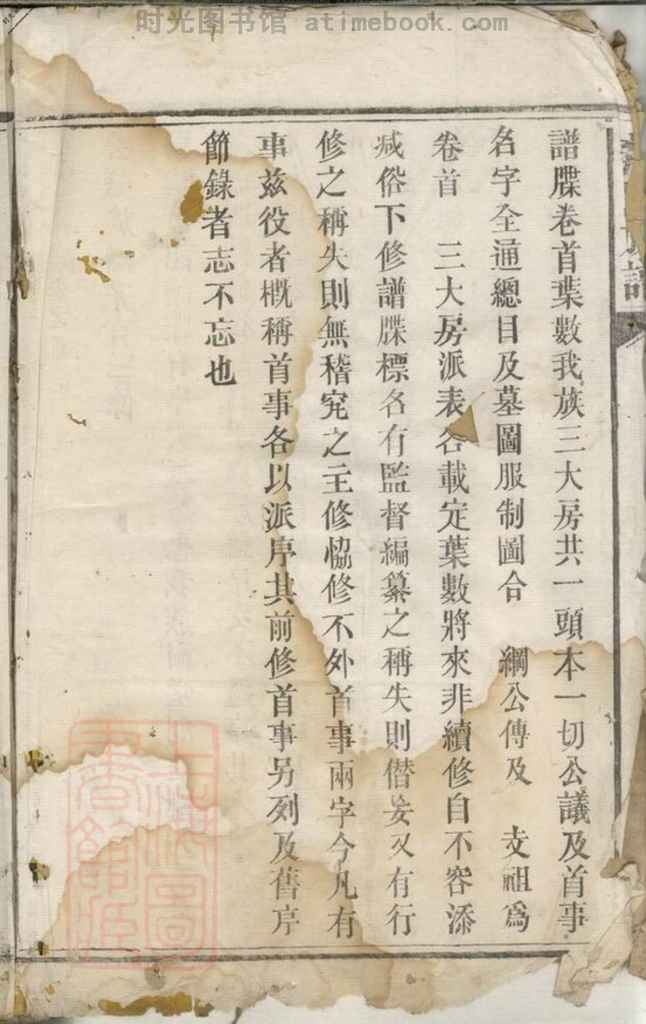 时光图书馆 atimebook.com
譜牒卷首葉數我族三大房共一頭本一切公議及首事
名字全通總目及墓圖服制圖合　綱公傳及　支祖爲
卷首　三大房派表各載定葉數將來非續修自不容添
减俗下修譜牒標各有監督編纂之稱失則僭妄又有行
修之稱失則無稽究之主修恊修不外首事兩字今凡有
事兹役者槪稱首事各以派序其前修首事另列及舊序
節錄者志不忘也